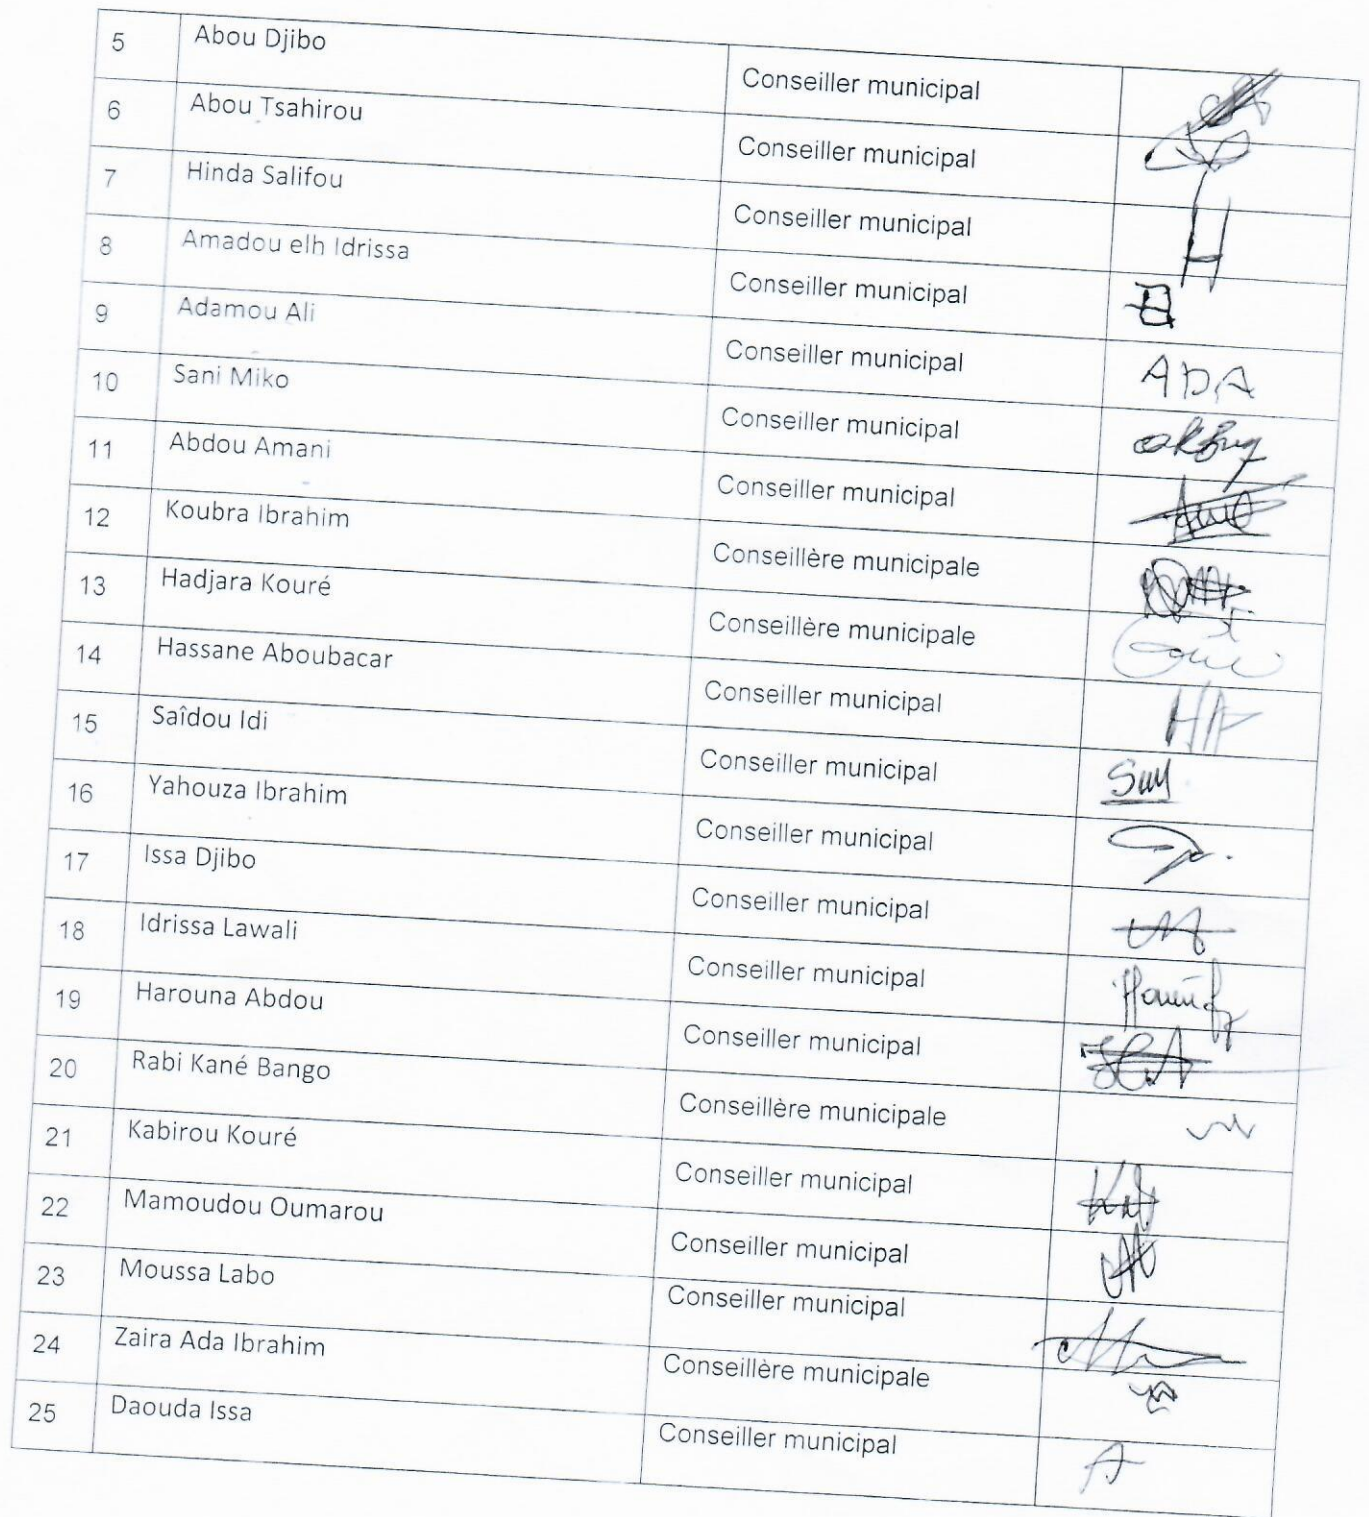 5 Abou Djibo Conseiller municipal
6 Abou Tsahirou Conseiller municipal
7 Hinda Salifou Conseiller municipal H
8 Amadou elh Idrissa Conseiller municipal
9 Adamou Ali Conseiller municipal ADA
10 Sani Miko Conseiller municipal
11 Abdou Amani Conseiller municipal
12 Koubra Ibrahim Conseillère municipale
13 Hadjara Kouré Conseillère municipale
14 Hassane Aboubacar Conseiller municipal HA
15 Saîdou Idi Conseiller municipal
16 Yahouza Ibrahim Conseiller municipal
17 Issa Djibo Conseiller municipal
18 Idrissa Lawali Conseiller municipal
19 Harouna Abdou Conseiller municipal
20 Rabi Kané Bango Conseillère municipale
21 Kabirou Kouré Conseiller municipal
22 Mamoudou Oumarou Conseiller municipal
23 Moussa Labo Conseiller municipal
24 Zaira Ada Ibrahim Conseillère municipale
25 Daouda Issa Conseiller municipal A